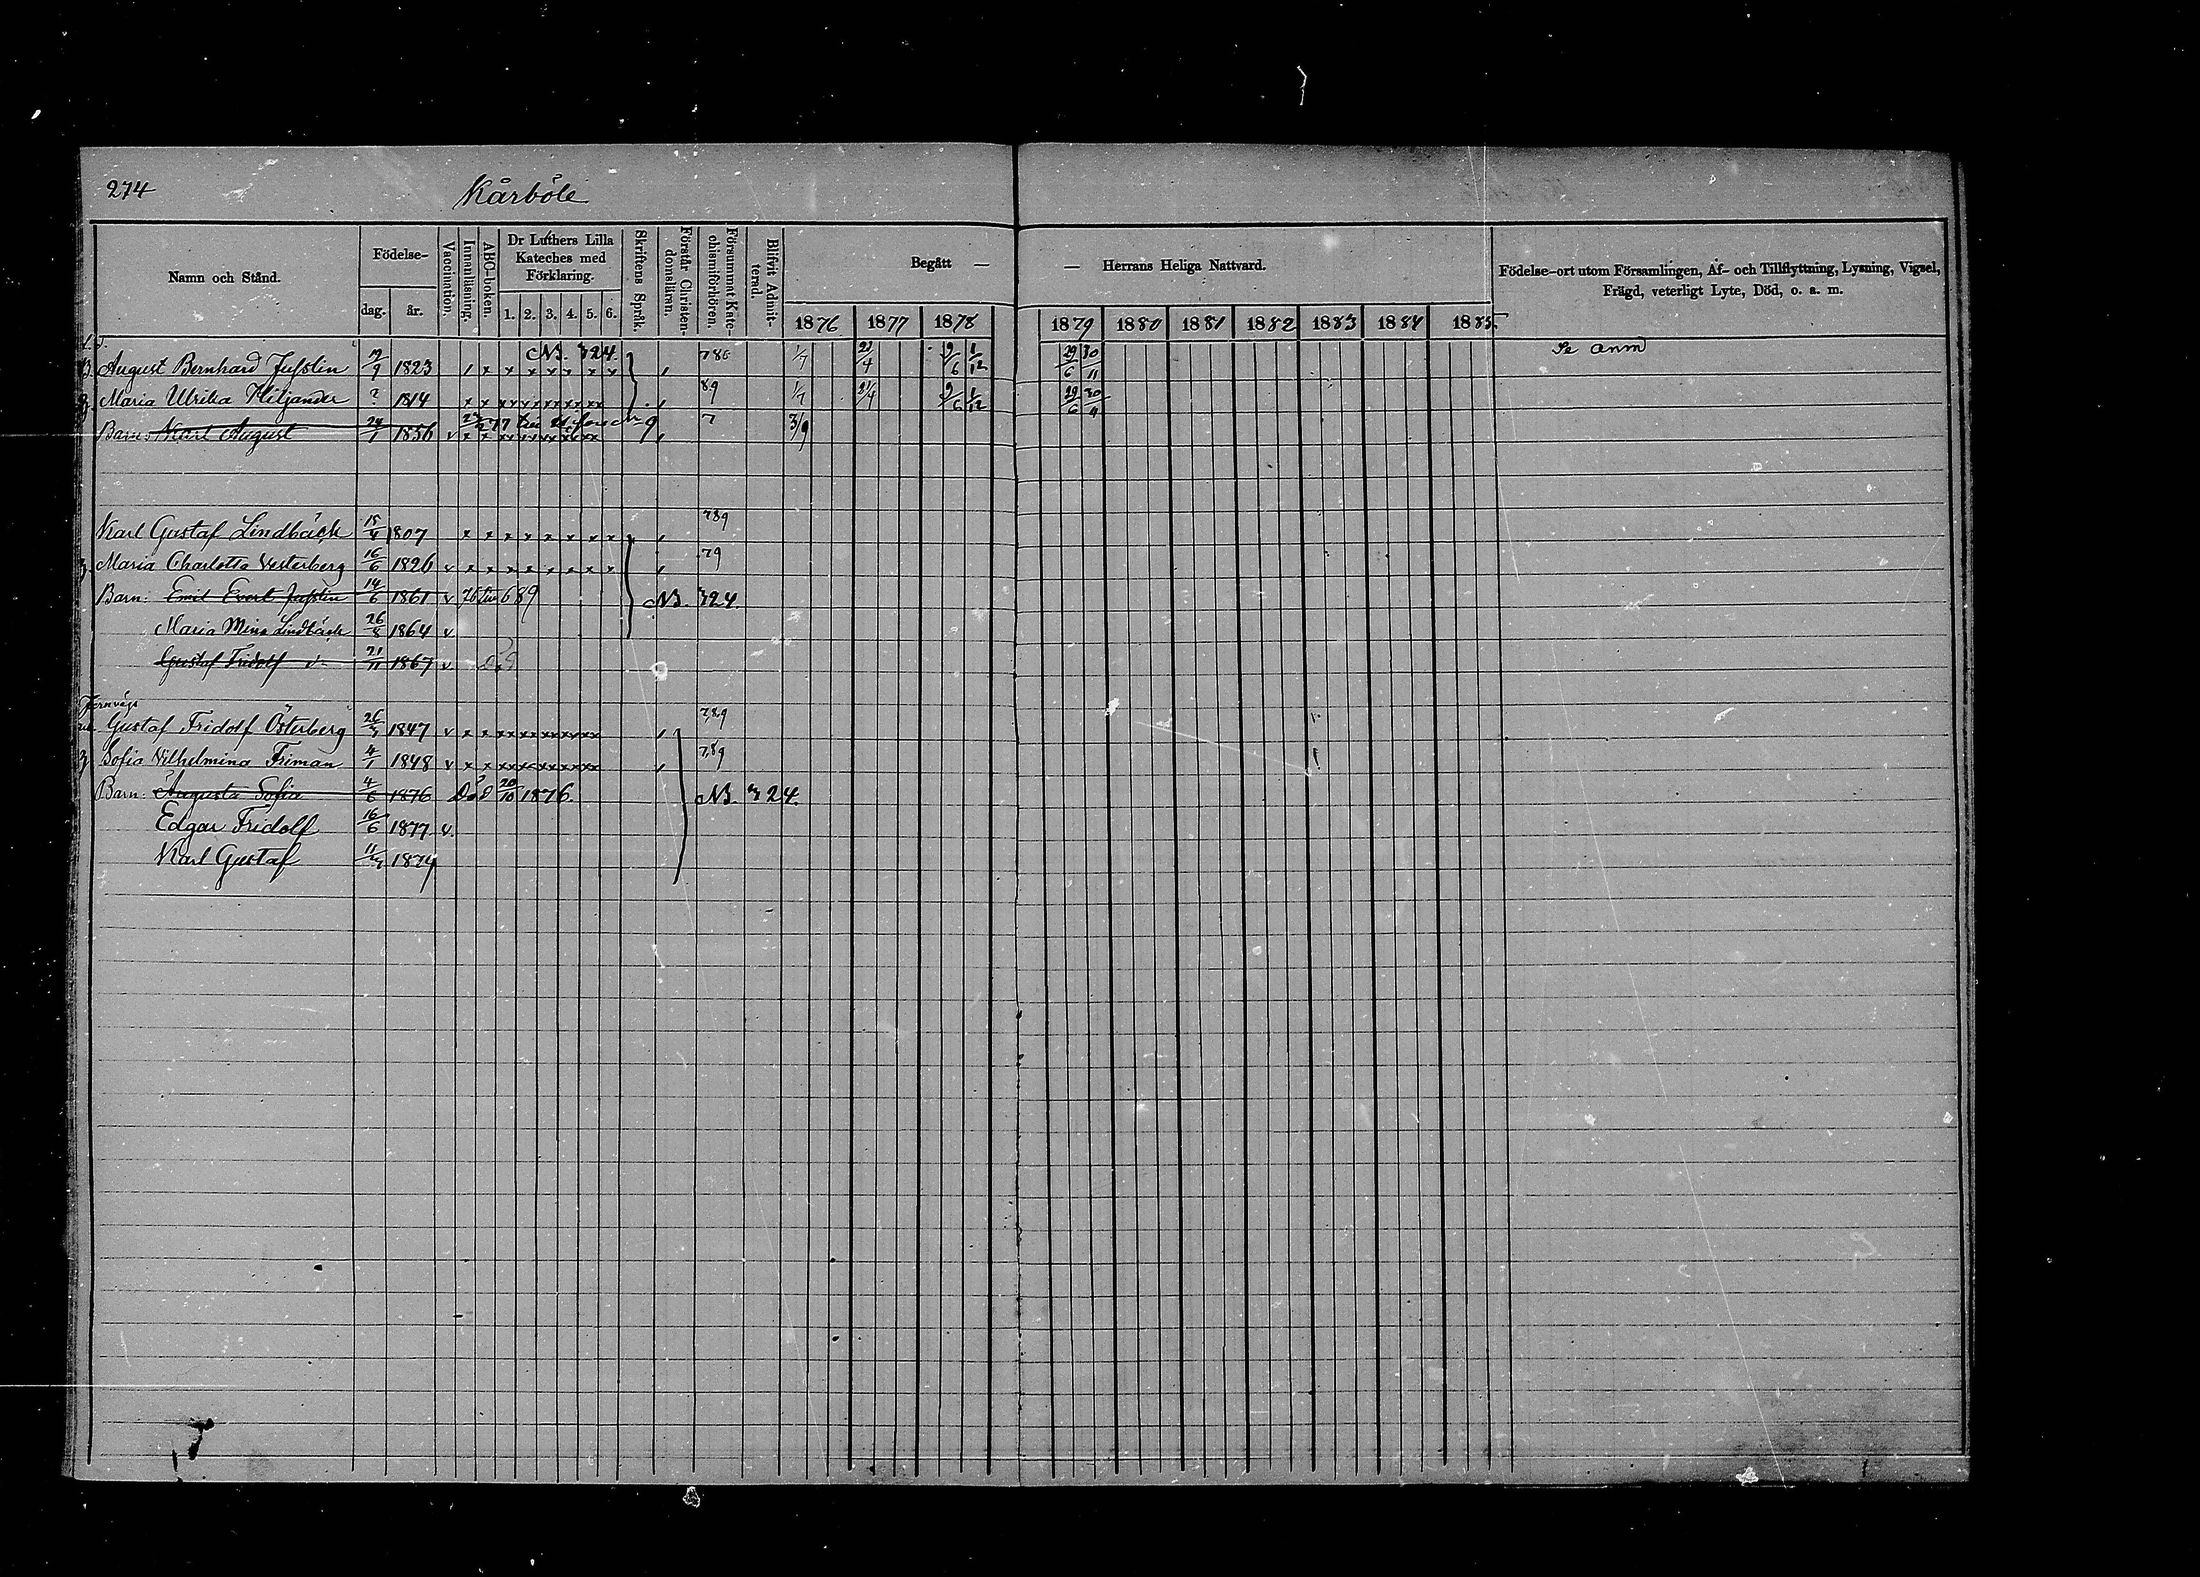 274
Kårböle
Namn och Stånd.
Födelse-
dag.
år.
Vaccination.
Innanläsning.
ABC-boken.
Dr Luthers Lilla
Kateches med
Förklaring.
1. 2. 3. 4. 5. 6.
Skriftens Språk.
Förstår Christen-
domsläran.
Försummat Kate-
chismiförhören.
Blifvit Admit-
terad.
Begått —
— Herrans Heliga Nattvard.
1876 1877 1878 1879 1880 1881 1882 1883 1884 1885
Födelse-ort utom Församlingen, Af- och Tillflyttning, Lysning, Vigsel,
Frägd, veterligt Lyte, Död, o. a. m.
August Bernhard Jusslin 19/9 1823 N. 324 1/7 22/4 9/6 1/12 29/6 30/11 Se anm
Maria Ulrika Hiljander ? 1814 89 1/7 9/6 1/12 29/6 30/11
Barn: Karl August 24/1 1856 v 7 3/9
Karl Gustaf Lindbäck 1807 789
Maria Charlotta Vesterberg 16/6 1826 v 79
Barn: Emil Evert Jusslin 14/6 1861 v 689 N. 324
Maria Mina Lindbäck 26/8 1864 v
Gustaf Fridolf 21/11 1867 v Död
Jernvägs
Gustaf Fridolf Österberg 1847 v 789
Sofia Vilhelmina Friman 4/1 1848 v 789
Barn: Augusta Sofia 4/6 1876 Död 20/10 1876. N. 324.
Edgar Fridolf 16/6 1877 v.
Karl Gustaf 1879